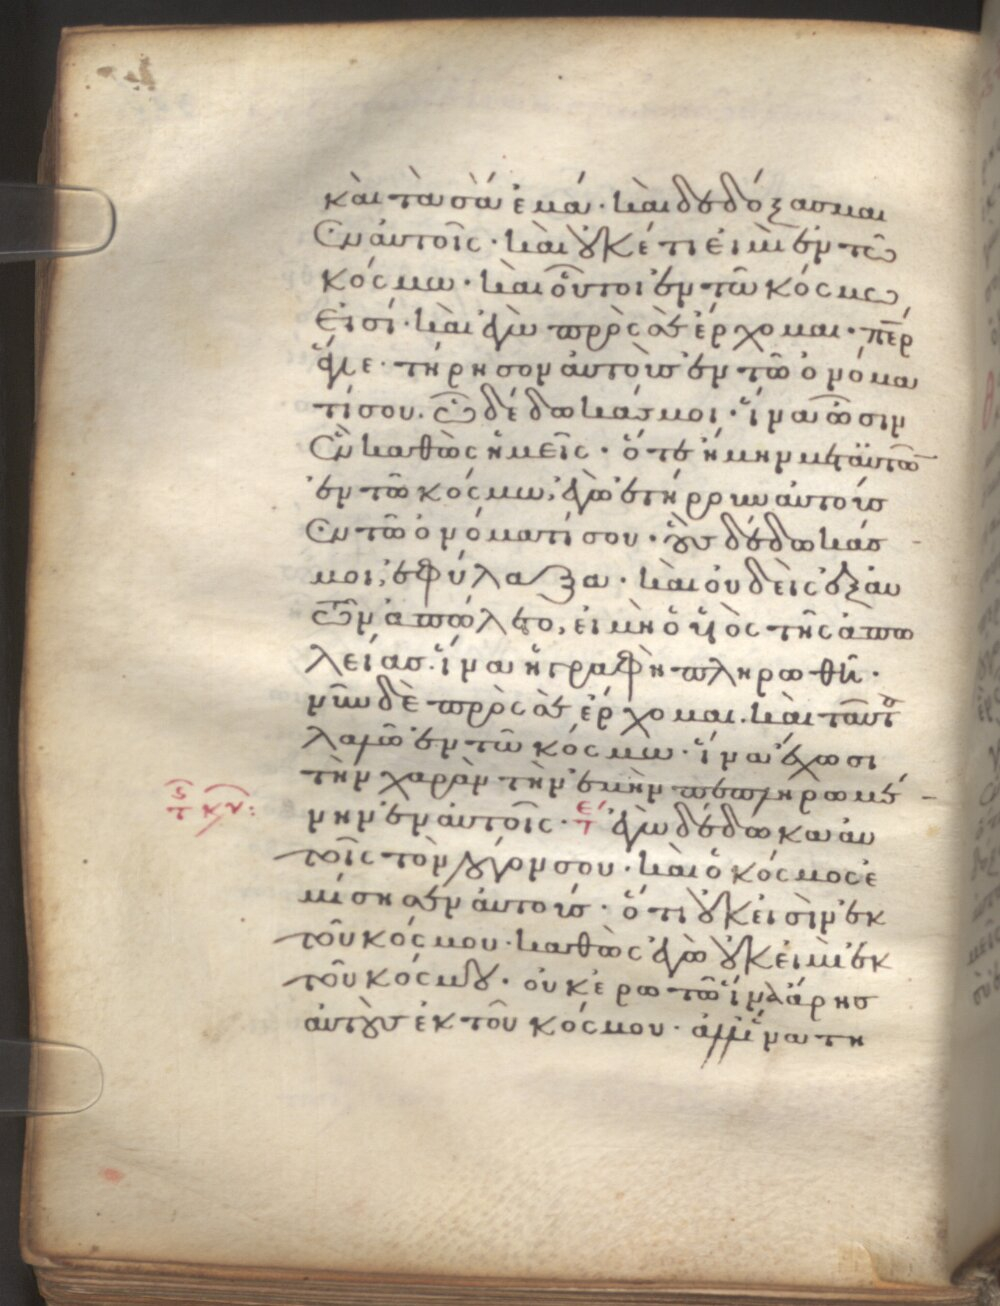 καὶ τὰ σὰ ἐμά · καὶ δεδόξασμαι
ἐν αὐτοῖς · καὶ οὐκέτι εἰμὶ ἐν τῶ
κόσμω · καὶ οὗτοι ἐν τῶ κόσμω
εἰσί · καὶ ἐγὼ πρὸς σὲ ἔρχομαι · περ
ἅγιε · τήρησον αὐτοὺς ἐν τῶ ὀνόμα
τί σου. ὧ δέδωκάς μοι · ἵνα ὦσιν
ἓν καθὼς ἡμεῖς · ὅτε ἤμην μετ αὐτῶ
ἐν τῶ κόσμω, ἐγὼ ἐτήρουν αὐτοὺς
ἐν τῶ ὀνόματί σου · οὓς δέδωκάς
μοι, ἐφύλαξα · καὶ οὐδεὶς ἐξ αὐ
τῶν ἀπώλετο, εἰ μὴ ὁ υἱὸς τῆς ἀπω
λείας. ἵνα ἡ γραφὴ πληρωθῆ ·
νῦν δὲ πρὸς σὲ ἔρχομαι. καὶ ταῦτ
λαλῶ ἐν τῶ κόσμω · ἵνα ἔχωσι
τὴν χαρὰν τὴν ἐμὴν πεπληρωμέ
νην ἐν αὐτοῖς · ἐγὼ δέδωκα αὐ
τοῖς τὸν λόγον σου · καὶ ὁ κόσμος ἐ
μίσησεν αὐτούς · ὅτι οὐκ εἰσὶν ἐκ
τοῦ κόσμου · καθὼς ἐγὼ οὐκ εἰμὶ ἐκ
τοῦ κόσμου · οὐκ ἐρωτῶ ἵνα ἄρης
αὐτοὺς ἐκ τοῦ κόσμου · ἀλλ ἵνα τη